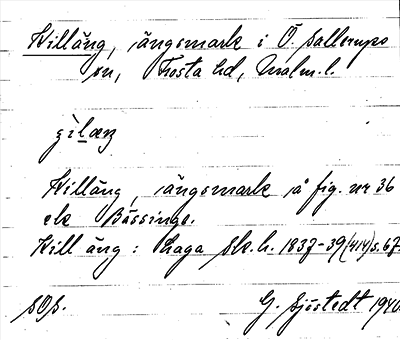 Killäng, ängsmark i Ö. Sallerups
sn, Frosta hd, Malm. l.
gìlæŋ
Killäng, ängsmark å fig. nr 36
ek Bässinge.
Kill äng: Laga sk. h. 1837-39 (414) s. 67.
SOS. G. Sjöstedt 1940